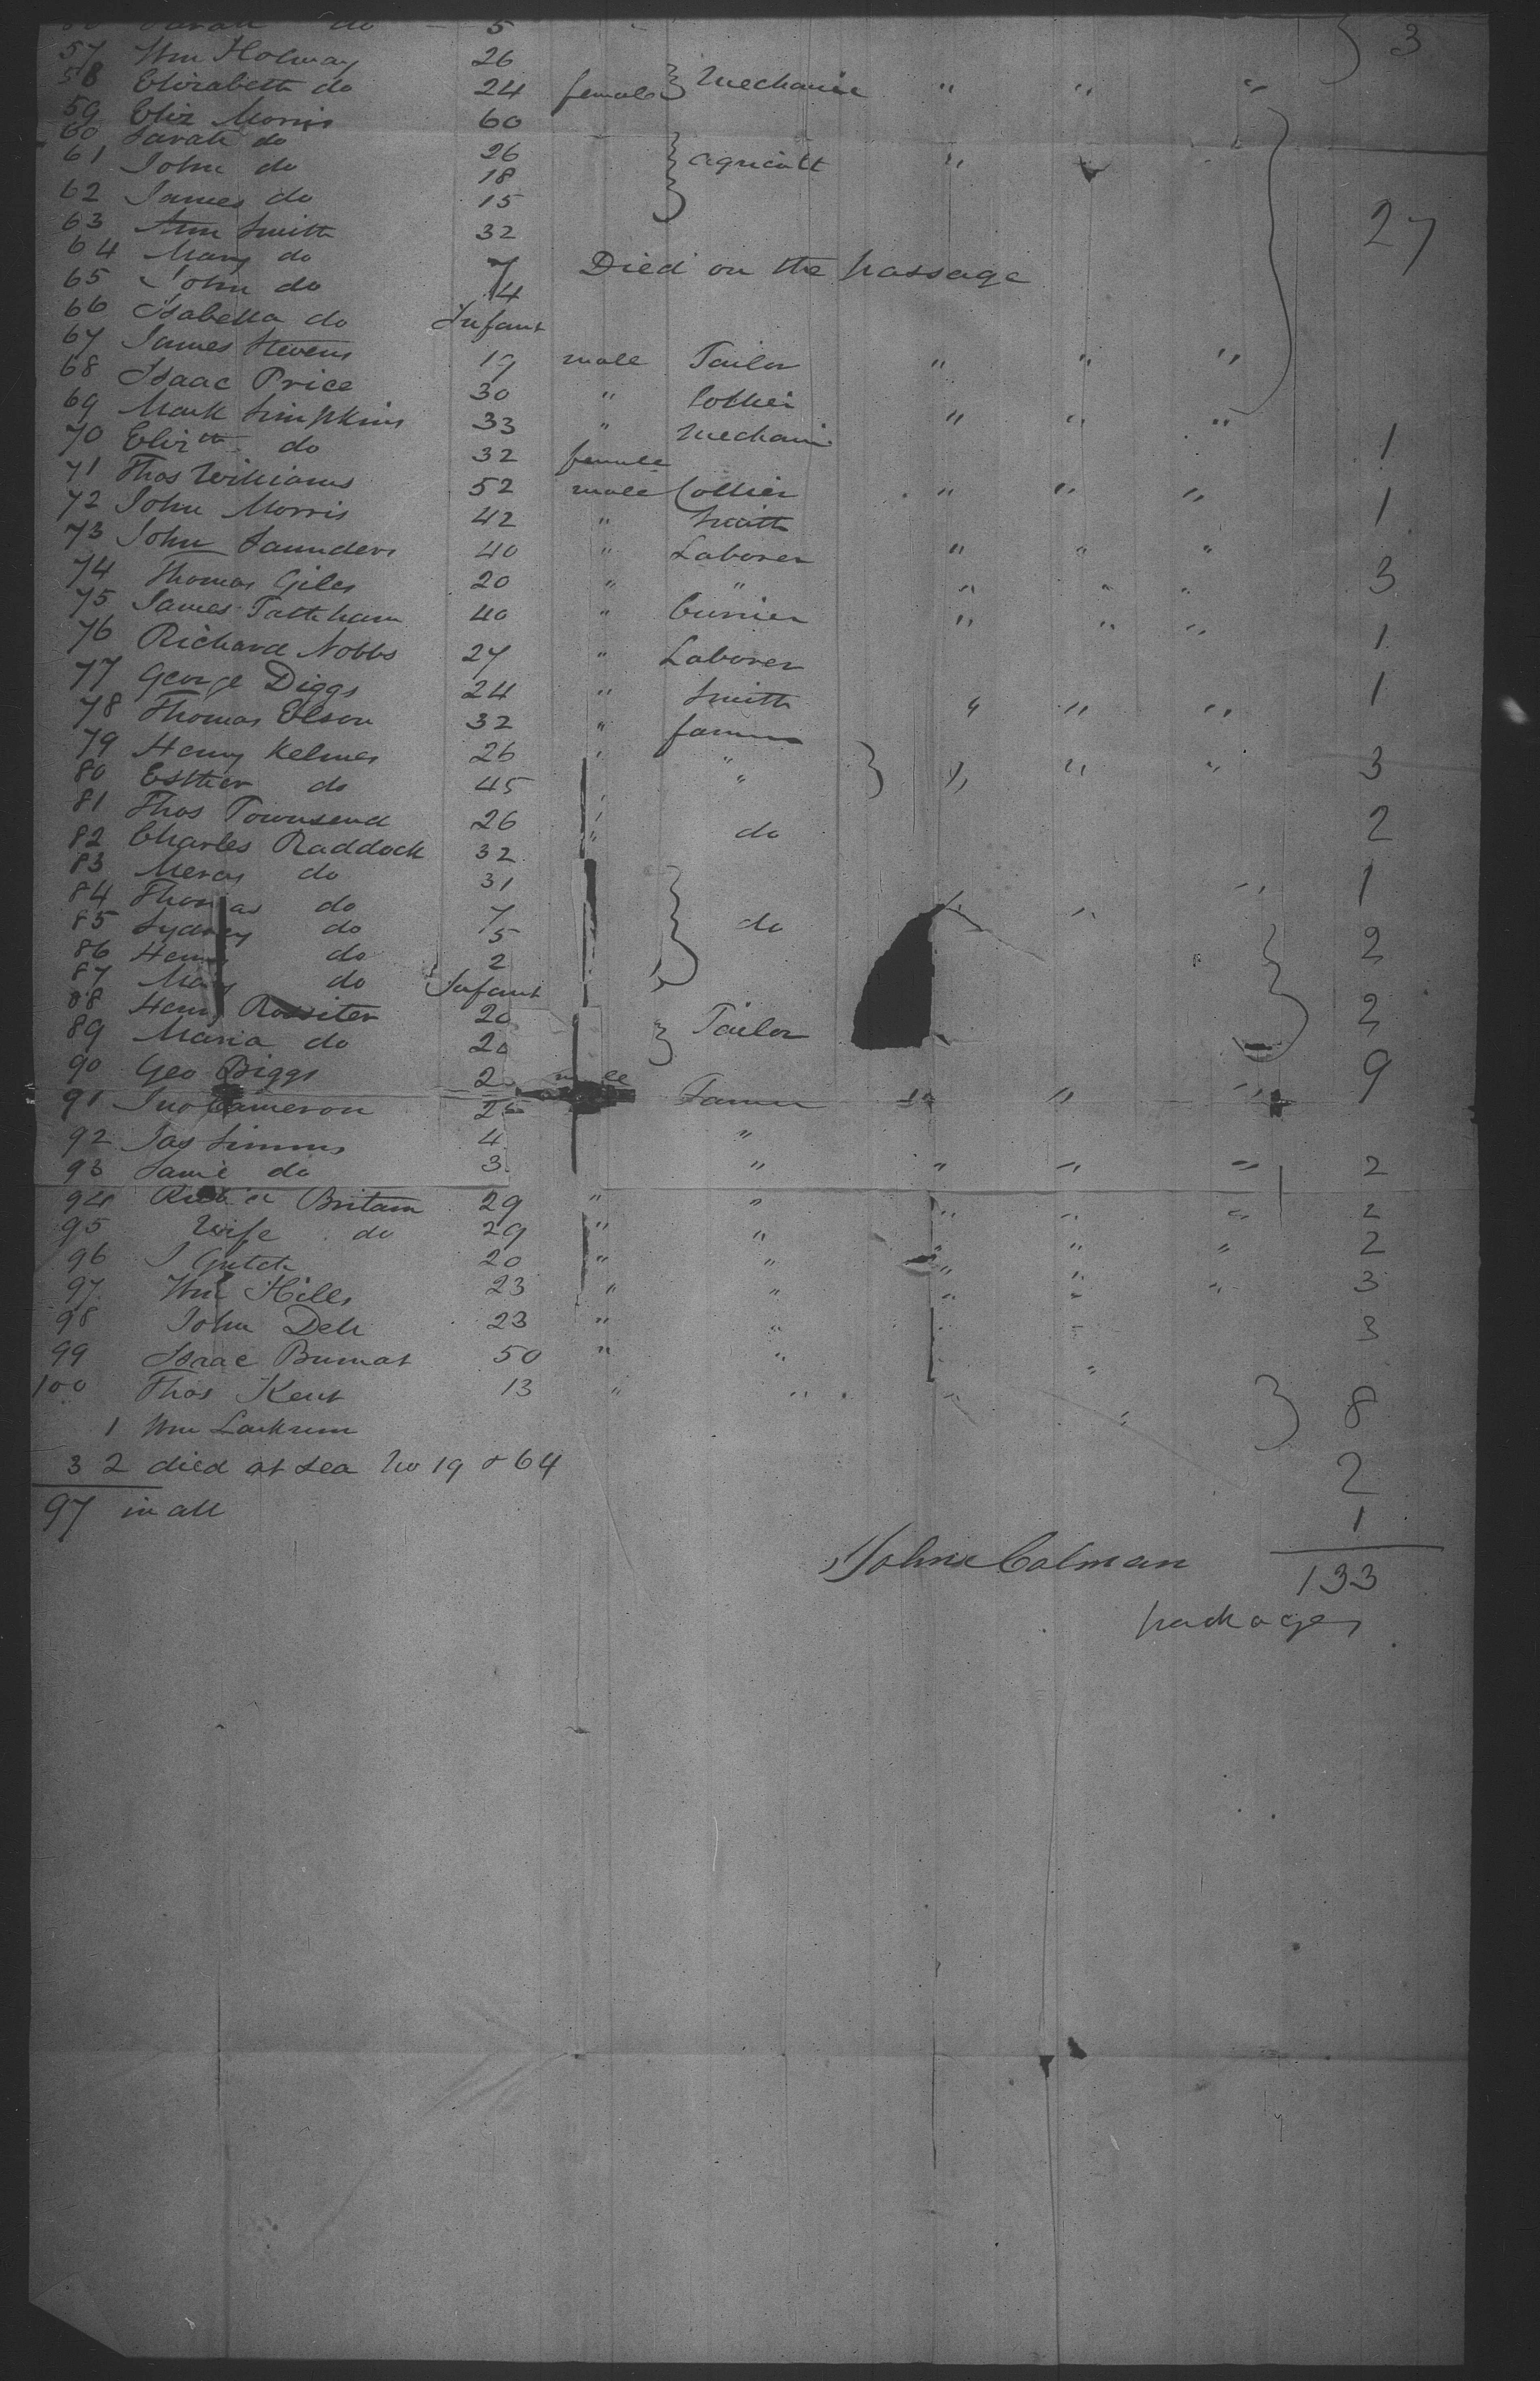 do 5 3
57 Wm Holway 26
58 Elizabeth do 24 female } Mechanic " " "
59 Eliz Morris 60
60 Sarah do 26 } agricult "
61 John do 18
62 James do 15
63 Ann Smith 32 27
64 Mary do 7 Died on the passage
65 John do 4
66 Isabella do Infant
67 James Stevens 19 male Tailor " " "
68 Isaac Price 30 " Collier
69 Mark Simpkins 33 " Mechani " " "
70 Eliz th do 32 female 1
71 Thos Williams 52 male Collier " " "
72 John Morris 42 " Smith 1
73 John Saunders 40 " Laborer " " "
74 Thomas Giles 20 " " " " " 3
75 James Tattcham 40 " Currier " " "
76 Richard Nobbs 27 " Laborer 1
77 George Diggs 24 " Smith " " " 1
78 Thomas Elson 32 " farmer
79 Henry Kelmes 26 " " } " " " 3
80 Esther do 45 "
81 Thos Townsend 26 " do 2
82 Charles Raddock 32 "
83 Mercy do 31 1
84 Thomas do 7 } do "
85 Sydney do 5 2
86 Henry do 2
87 Mary do Infant
88 Henry Rossiter 20 } Tailor 2
89 Maria do 20
90 Geo Biggs 2 9
91 Jno Cameron 25 Farmer " " "
92 Jas Simms 4 "
93 Same do 3 " " " " 2
94 Britain 29 " " " " " 2
95 Wife do 29 " " " " " 2
96 J Gutch 20 " "
97 Wm Hills 23 " " " " " 3
98 John Deli 23 " " 3
99 Isaac Bumat 50 " " "
100 Thos Kent 13 " " " " } 8
1 Wm Larkum
3 2 died at sea No 19 & 64 2
97 in all 1
John Colman 133
packages